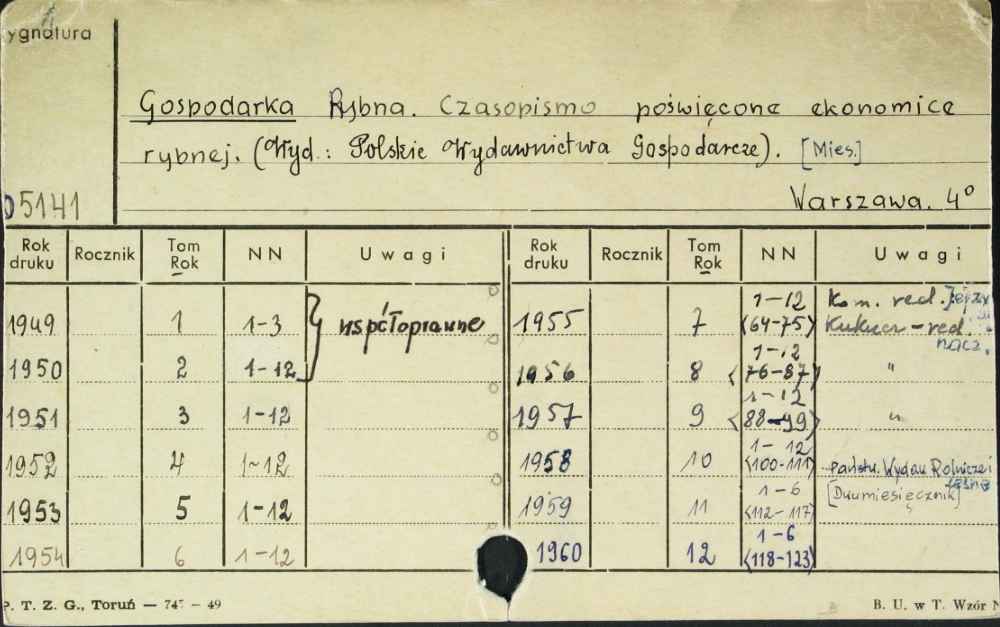 ygnatura
Gospodarka Rybna. Czasopismo poświęcone ekonomice
rybnej. (Wyd.: Polskie Wydawnictwa Gospodarcze). [Mies.]
05141
Warszawa. 4°
Rok druku Rocznik Tom Rok NN Uwagi Rok druku Rocznik Tom Rok NN Uwagi
1949 1 1-3 współoprawne 1955 7 1-12 (64-75) Kom. red. Jerzy Kukucz - red. nacz.
1950 2 1-12 1956 8 1-12 (76-87) "
1951 3 1-12 1957 9 1-12 (88-99) "
1952 4 1-12 1958 10 1-12 (100-111) Państw. Wydaw. Rolnicze i Leśne
1953 5 1-12 1959 11 1-6 (112-117) [Dwumiesięcznik]
1954 6 1-12 1960 12 1-6 (118-123)
P. T. Z. G., Toruń — 747 — 49
B. U. w T. Wzór N